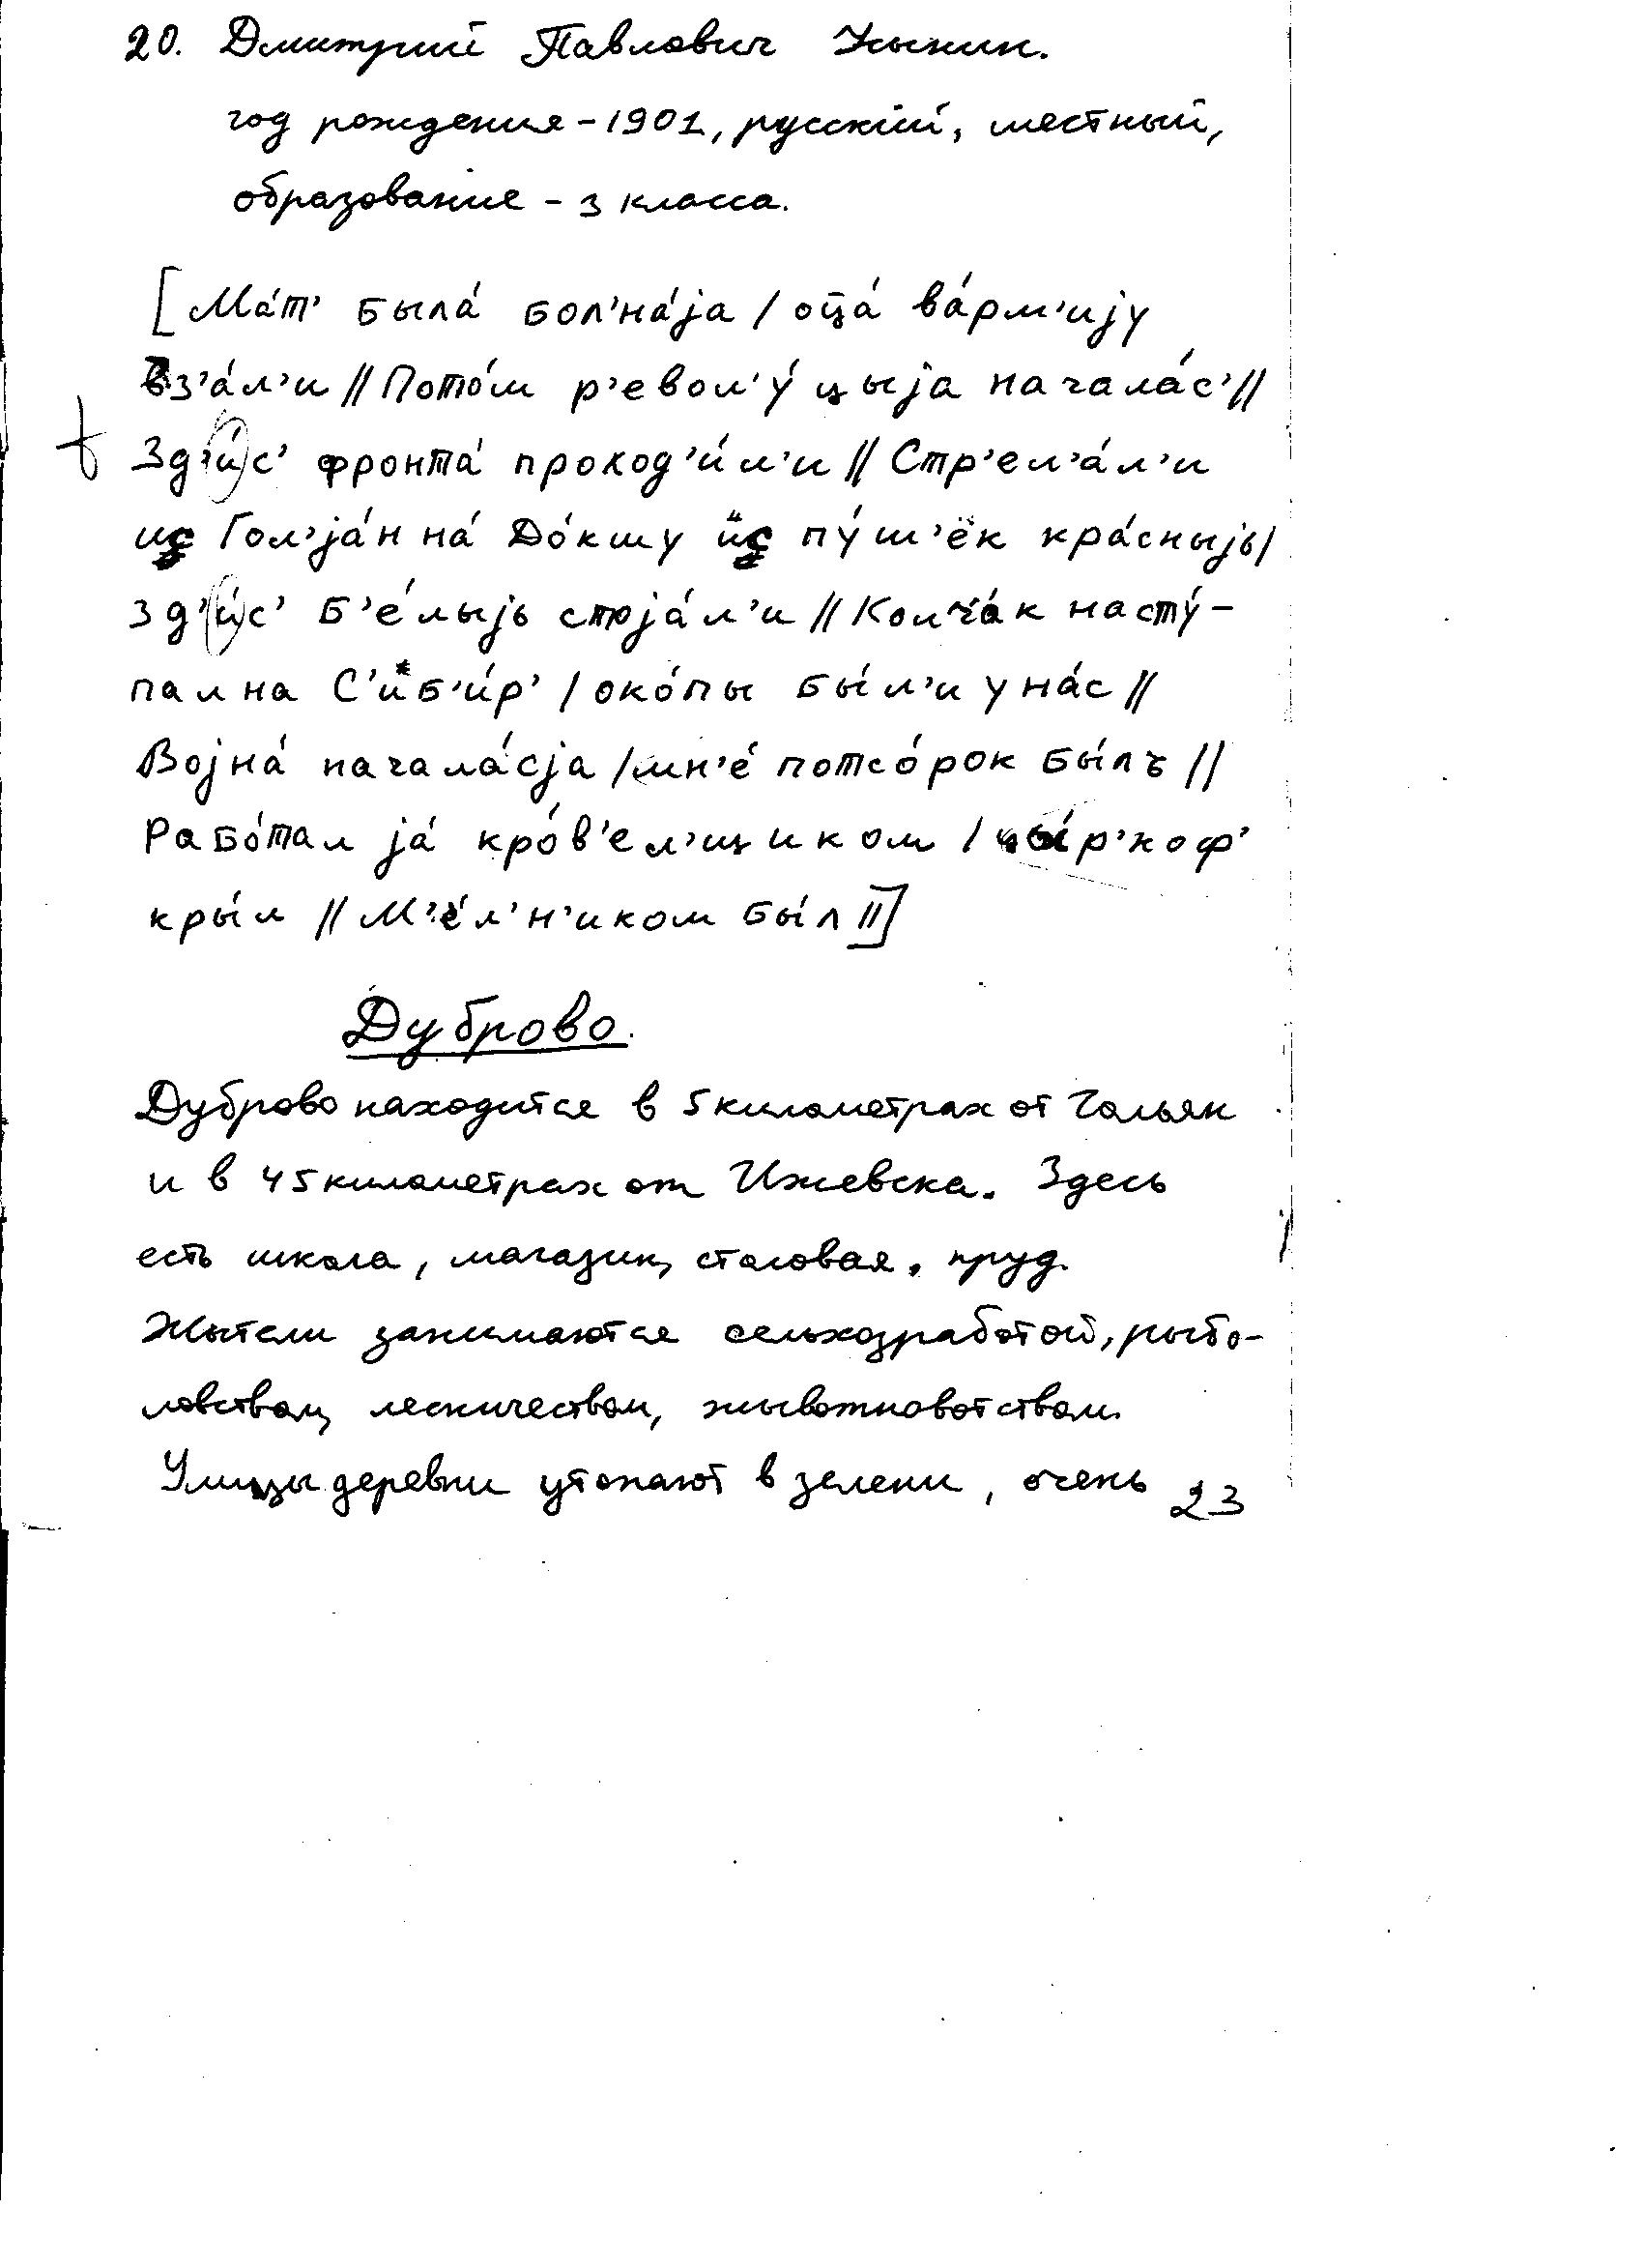 20. Дмитрий Павлович
год рождения – 1901, русский, местный,
образование – 3 класса.
[Ма́т' была́ бол'на́jа / оц̄а́ ва́рм'иjу
вз'а́л'и // Пото́м р'евол'у́цыjа начала́с' //
Зд'и́с' фронта́ проход'и́л'и // Стр'ел'а́л'и
Гол'jа́н на́ До́кшу пу́ш'ёк кра́сныjь /
Зд'и́с' б'е́лыjь стоjа́л'и // Колча́к насту́-
пал на С'иб'и́р' / око́пы бы́л'и у на́с //
Воjна́ начала́сjа / мн'е́ потсо́рок бы́лъ //
Рабо́тал jа́ кро́в'ел'щиком / цы́р'коф'
кры́л // М'е́л'н'иком бы́л //]
Дуброво.
Дуброво находится в 5 километрах от Гольян
и в 45 километрах от Ижевска. Здесь
есть школа, магазин, столовая, пруд.
Жытели занимаются сельхозработой, рыбо-
ловством, лесничеством, жывотноводством.
Улицы деревни утопают в зелени, очень
23